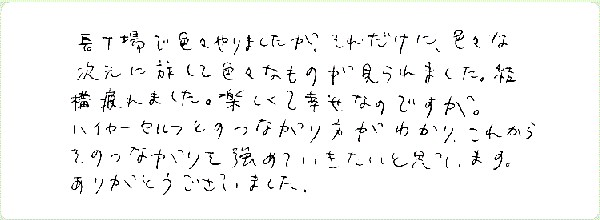 長丁場で色々やりましたが、それだけに、色々な
次元に旅して色々なものが見られました。結
構疲れました。楽しくて幸せなのですが。
ハイヤーセルフとのつながり方がわかり、これから
そのつながりを強めていきたいと思っています。
ありがとうございました。